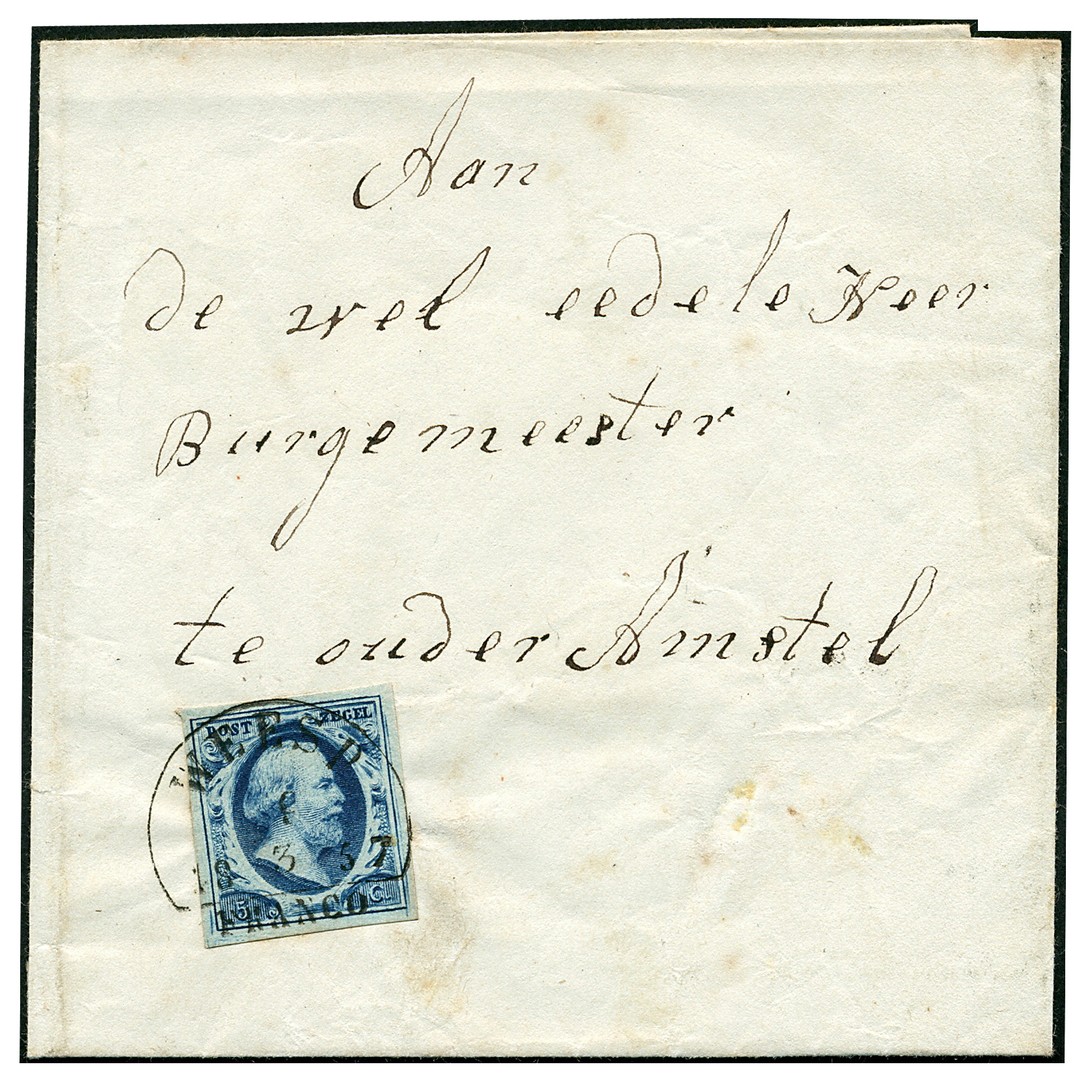 Aan
de wel eedele Heer
Burgemeester
te ouder Amstel
POST ZEGEL
WEESP
3 57
5 C.
FRANCO